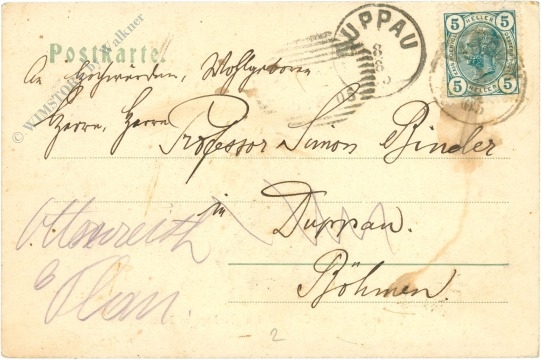 Postkarte.
© WIMSTORE by Walkner
DUPPAU
8
8
03
5 HELLER 5
5 HELLER 5
An Hochwürden, Wohlgeboren
Herrn, Herrn
Professor Simon Binder
in
Duppau.
Böhmen.
Ottenreuth
b Plan.
2